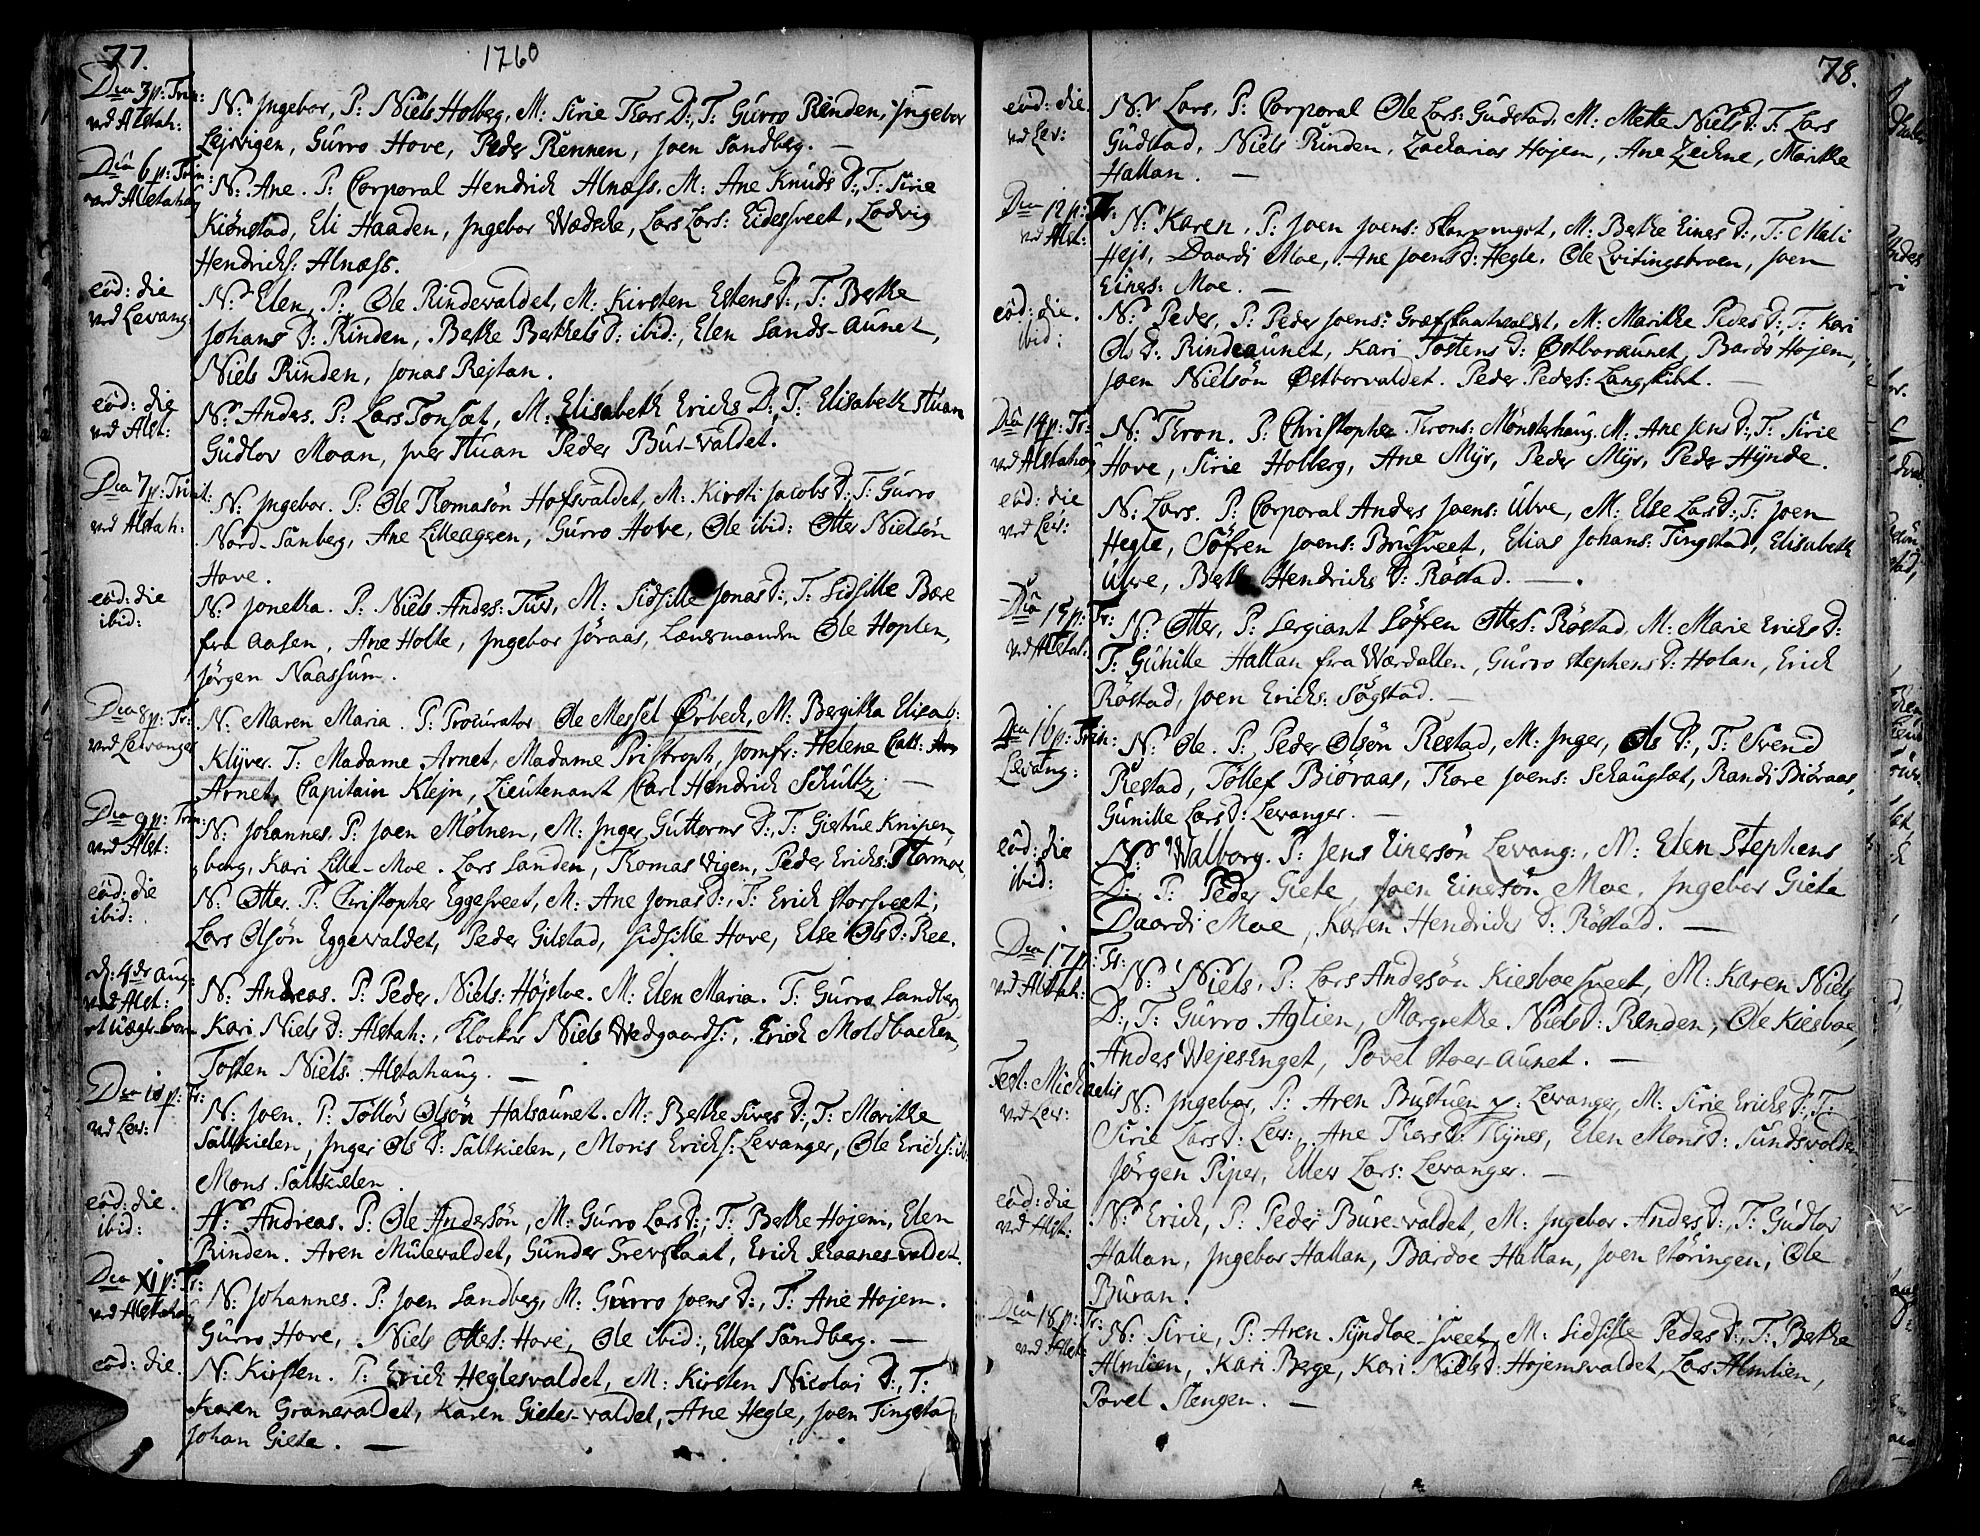 77.
1760
Dca 3 p: Trin:
ved Alstah:
N: Ingebor, P: Niels Holberg, M: Sirie Thors D:, T: Gurro Rinden, Ingebor
Lejrvigen, Gurro Hove, Peder Rennen, Joen Sandberg. —
Dca 6 p: Trin:
ved Alstahoug
N: Ane. P: Corporal Hendrich Alnæss, M: Ane Knuds D:, T: Sirie
Kiønstad, Eli Haaden, Ingebor Wædche, Lars Lars: Eidessveet, Lodvig
Hendrichs: Alnæss.
eod: die
ved Levang
N: Elen, P: Ole Rindevaldet, M: Kirsten Estens D:, T: Berthe
Johans D: Rinden, Berthe Berthels D: ibid:, Elen Sands-aunet,
Niels Rinden, Jonas Rejtan.
eod: die
ved Alst:
N: Anders. P: Lars Tonset, M: Elisabeth Erichs D:, T: Elisabeth Stuan
Gudlov Moan, Iver Stuan Peder Bur-valdet.
Dca 7 p: Trinit:
ved Alstah:
N: Ingebor. P: Ole Thomasøn Hofsvaldet, M: Kirsti Jacobs D:, T: Gurro
Nord-Sanberg, Ane Lilleaggen, Gurro Hove, Ole ibid: Otter Nielsøn
Hove.
eod: die
ibid:
N: Jonetha. P: Niels Anders: Tuv, M: Sidsille Jonas D:, T: Sidsille Bære
fra Aasen, Ane Holte, Ingebor Jøraas, Lænsmanden Ole Hoplen,
Jørgen Naassum.
Dca 8 p: Tr:
ved Levanger
N: Maren Maria. P: Procurator Ole Messel Ørbech, M: Bergitha Elisab:
Klyver. T: Madame Arnet, Madame Pristroph, Jomfr: Helene Cath:
Arnet, Capitain Klejn, Lieutenant Carl Hendrich Schultz. —
Dca 9 p: Trin:
ved Alst:
N: Johannes. P: Joen Mølnen, M: Inger Guttorms D:, T: Giertrue Knipen-
berg, Kari Lille-Moe. Lars Sanden, Thomas Vigen, Peder Erichs: Starmoe,
eod: die
ibid:
N: Otter. P: Christopher Eggesveet, M: Ane Jonas D:, T: Erich Storsveet,
Lars Olsøn Eggevaldet, Peder Gilstad, Sidsille Hove, Else Ols D: Ree.
d: 4de Aug:
ved Alst:
et Uægte barn
N: Andreas. P: Peder Niels: Højsloe. M: Elen Maria. T: Gurro Sandberg
Kari Niels D: Alstah:, Klocker Niels Wedgaards:, Erich Moldbachen,
Tosten Niels: Alstahaug. —
Dca 10 p: Tr:
ved Lev:
N: Joen. P: Tølløv Olsøn Halsaunet. M: Berthe Sivers D:, T: Marithe
Saltkielen, Inger Ols D: Saltkielen, Moris Erichs: Levanger, Ole Erichs: ib:
Mons Saltkielen.
eod: die.
ibid:
N: Andreas. P: Ole Andersøn, M: Gurro Lars D:, T: Berthe Hojem, Elen
Rinden. Aren Mulevaldet, Gunder Grevskaat, Erich Skaanes-valdet.
Dca XI p: Tr:
ved Alstahoug
N: Johannes. P: Joen Sandberg, M: Gurro Joens D:, T: Ane Hojem.
Gurro Hove, Niels Ottes: Hove, Ole ibid:, Ellef Sandberg. —
eod: die.
N: Kirsten. P: Erich Heglesvaldet, M: Kirsten Nicolai D:, T:
Karen Granevaldet, Karen Gietes-valdet, Ane Hegle, Joen Tingstad
Johan Giete. —
78.
eod: die.
ved Lev:
N: Lars, P: Corporal Ole Lars: Gudstad, M: Mette Niels D: T: Lars
Gudstad, Niels Rinden, Zacharias Hojem, Ane Zechne, Marithe
Hallan. —
Dca 12 p: Tr:
ved Alst:
N: Karen, P: Joen Joens: , M: Berthe Einers D:, T: Mali
Hejs, Daardi Moe, Ane Joens D: Hegle, Ole Qvitingsbroen, Joen
Einers: Moe. —
eod: die.
ibid:
N: Peder, P: Peder Joens: Græfskaatvaldet, M: Marithe Peders D: T: Kari
Ols D: Rindeaunet, Kari Tostens D: Østboraunet, Bardo Hojem,
Joen Nielsøn Østborvaldet. Peder Peders: Langskibt. —
Dca 14 p: Tr:
ved Alstahoug
N: Thron. P: Christopher Throns: Mønsterhaug. M: Ane Jens D:, T: Sirie
Hove, Sirie Holberg, Ane Myr, Peder Myr, Peder Hynde.
eod: die
ved Lev:
N: Lars. P: Corporal Anders Joens: Ulve, M: Else Lars D:, T: Joen
Hegle, Søfren Joens: Brusveet, Elias Johans: Tingstad, Elisabeth
Ulve, Berth Hendrichs D: Røstad. —
Dca 15 p: Tr:
ved Alstah.
N: Otter, P: Sergiant Søfren Ottes: Røstad. M: Marie Erichs D:
T: Gunille Hallan fra Wærdallen, Gurro Stephens D: Holan, Erich
Røstad, Joen Erichs: Søgstad. —
Dca 16 p: Trin:
Levang:
N: Ole. P: Peder Olsøn Restad, M: Inger Ols D:, T: Svend
Restad, Tøllef Biøraas, Thore Joens: Schaugset, Randi Biøraas,
Gunille Lars D: Levanger. —
eod: die
ibid:
N: Walborg. P: Jens Einersøn Levang:, M: Elen Stephens
D:, T: Peder Giete, Joen Einersøn Moe, Ingebor Giete
Daardi Moe, Karen Hendrichs D: Røstad. —
Dca 17 p: Tr:
ved Alstah:
N: Niels, P: Lars Andersøn Kiesboesveet, M: Karen Niels
D:, T: Gurro Aglien, Margrethe Niels D: Renden, Ole Kiesboe,
Anders Wejesenget, Povel Stoer-aunet. —
Fest: Michaelis
ved Lev:
N: Ingebor, P: Aren Bustuen p: Levanger, M: Sirie Erichs D:, T:
Sirie Lars D: Lev:, Ane Thors D: Thynes, Elen Mons D: Sundsvaldet,
Jørgen Piper, Ellev Lars: Levanger. —
eod: die
ved Alst:
N: Erich, P: Peder Bure-valdet, M: Ingebor Anders D:, T: Gudlov
Hallan, Ingebor Hallan, Bardoe Hallan, Joen Støringen, Ole
Buran.
Dca 18 p: Tr:
ved Alst:
N: Sirie, P: Aren Syndloe-sveet, M: Sidsille Peders D:, T: Berthe
Almlien, Kari Berge, Kari Niels D: Hojemsvaldet, Lars Almlien,
Povel Stengen. —